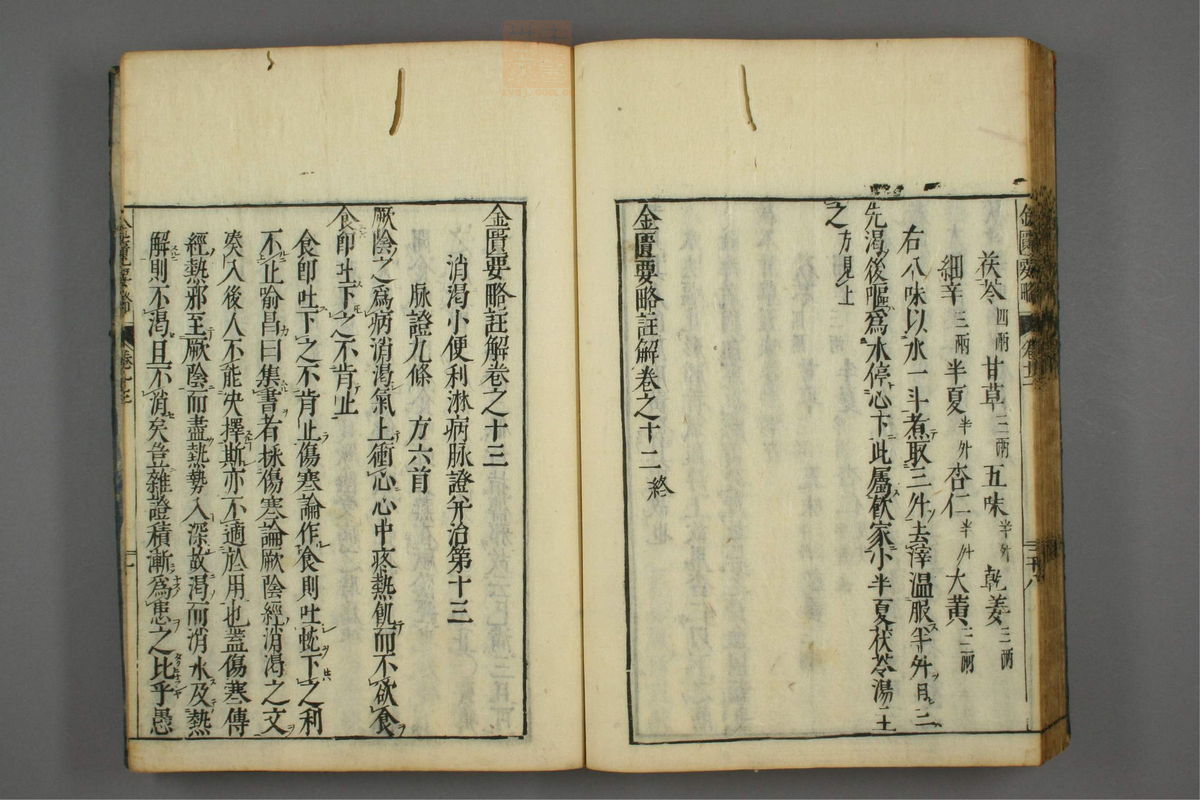 茯苓四兩 甘草三兩 五味半升 乾姜三兩
細辛三兩 半夏半升 杏仁半升 大黃三兩
右八味以水一斗煮取三升去滓溫服半升日三
先渴後嘔爲水停心下此屬飲家小半夏茯苓湯主
之方見上
金匱要略註解卷之十二終
金匱要略註解卷之十三
消渴小便利淋病脉證并治第十三
脉證九條 方六首
厥陰之爲病消渴氣上衝心心中疼熱飢而不欲食
食卽吐下之不肯止
食卽吐下之不肯止傷寒論作食則吐蚘下之利
不止喻昌曰集書者採傷寒論厥陰經消渴之文
湊入後人不能决擇斯亦不適於用也蓋傷寒傳
經熱邪至厥陰而盡熱勢入深故渴而消水及熱
解則不渴且不消矣豈雜證積漸爲患之比乎愚